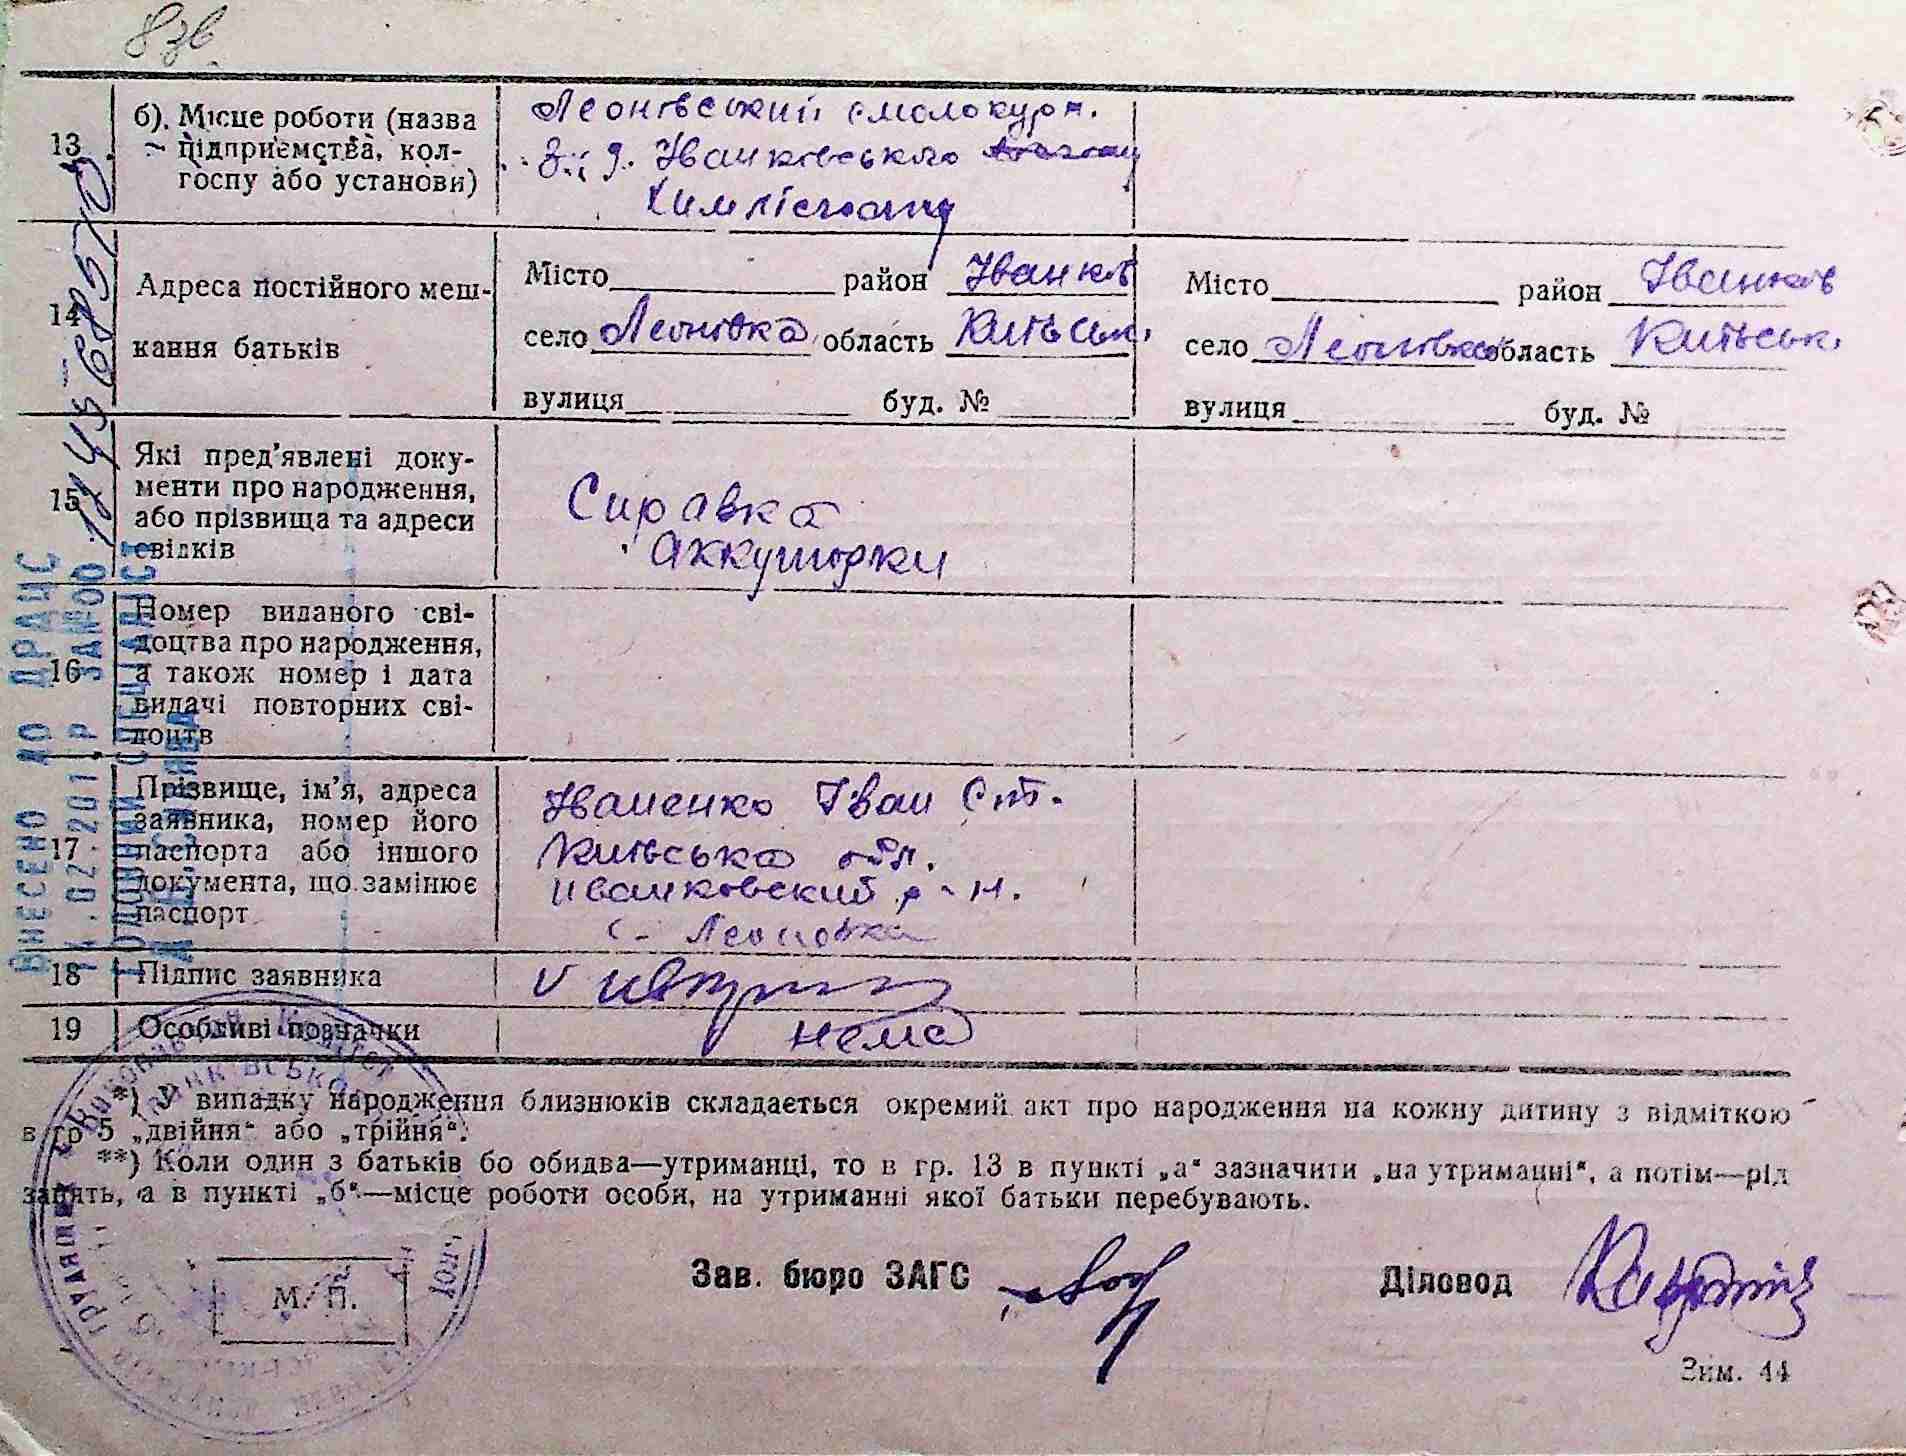 8 зв.
13 б). Місце роботи (назва підприємства, колгоспу або установи)
Леонівський смолокурн.
з-д. Іванківського
Хімлісгоспу
14 Адреса постійного мешкання батьків
Місто район Іванків
село Леонівка область Київськ.
вулиця буд. №
Місто район Іванків
село Леонівка область Київськ.
вулиця буд. №
15 Які пред'явлені документи про народження, або прізвища та адреси свідків
Справка
Аккушорки
16 Номер виданого свідоцтва про народження, а також номер і дата видачі повторних свідоцтв
17 Прізвище, ім'я, адреса заявника, номер його паспорта або іншого документа, що замінює паспорт
Іваненко Іван Ст.
Київська обл.
иванковский р-н.
с. Леоновка
18 Підпис заявника
19 Особливі позначки
нема
*) У випадку народження близнюків складається окремий акт про народження на кожну дитину з відміткою
в гр 5 „двійня“ або „трійня“.
**) Коли один з батьків бо обидва—утриманці, то в гр. 13 в пункті „а“ зазначити „на утриманні“, а потім—рід
занять, а в пункті „б“—місце роботи особи, на утриманні якої батьки перебувають.
М. П.
Зав. бюро ЗАГС
Діловод
Зим. 44
ВНЕСЕНО ДО ДРАЦС
ЗА №00
ГОЛОВНИЙ СПЕЦІАЛІСТ